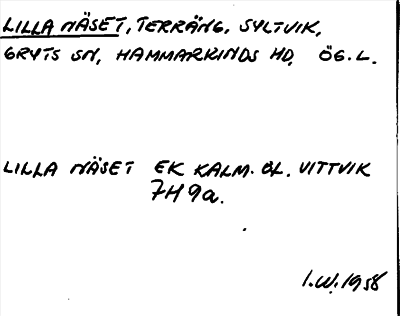 LILLA NÄSET, TERRÄNG, SYLTVIK,
GRYTS SN, HAMMARKINDS HD, ÖG.L.
LILLA NÄSET EK KALM. ÖL. VITTVIK
7H9a.
I.W. 1958